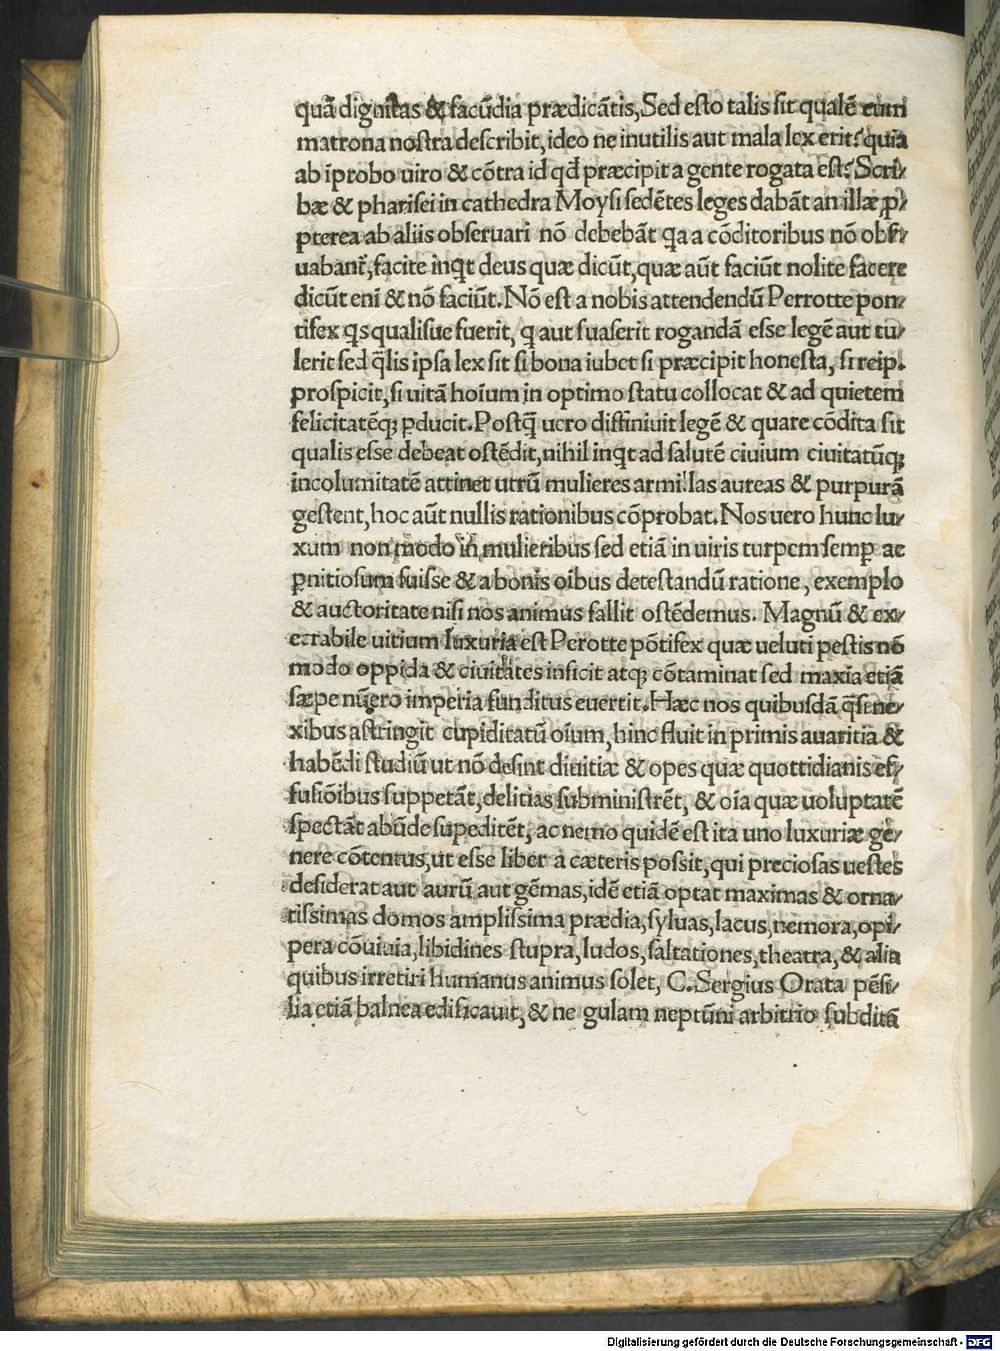 quā dignitas & facūdia prædicātis, Sed esto talis sit qualē eum
matrona nostra describit, ideo ne inutilis aut mala lex erit? quia
ab īprobo uiro & cōtra id qd̄ præcipit a gente rogata est? Scri/
bæ & pharisei in cathedra Moysi sedētes leges dabāt an illæ ꝓ/
pterea ab aliis obseruari nō debebāt qa a cōditoribus nō obser/
uabant̄, facite inqt deus quæ dicūt, quæ aūt faciūt nolite facere
dicūt eni & nō faciūt. Nō est a nobis attendendū Perrotte pon/
tifex qs qualisue fuerit, q aut suaserit rogandā esse legē aut tu/
lerit sed q̄lis ipsa lex sit si bona iubet si præcipit honesta, si reip.
prospicit, si uitā hoīum in optimo statu collocat & ad quietem
felicitatēqꝫ ꝑducit. Postq̄ uero diffiniuit legē & quare cōdita sit
qualis esse debeat ostēdit, nihil inqt ad salutē ciuium ciuitatūqꝫ
incolumitatē attinet utrū mulieres armillas aureas & purpurā
gestent, hoc aūt nullis rationibus cōprobat. Nos uero hunc lu/
xum non modo in mulieribus sed etiā in uiris turpem semꝑ ac
ꝑnitiosum fuisse & a bonis oībus detestandū ratione, exemplo
& auctoritate nisi nos animus fallit ostēdemus. Magnū & ex/
ecrabile uitium luxuria est Perotte pōtifex quæ ueluti pestis nō
modo oppida & ciuitates inficit atqꝫ cōtaminat sed maxīa etiā
sæpe nūero imperia funditus euertit. Hæc nos quibusdā q̄si ne/
xibus astringit cupiditatū oīum, hinc fluit in primis auaritia &
habēdi studiū ut nō desint diuitiæ & opes quæ quottidianis ef/
fusiōibus suppetāt, delitias subministrēt, & oīa quæ uoluptatē
spectāt abūde supeditēt, ac nemo quidē est ita uno luxuriæ ge/
nere cōtentus, ut esse liber a cæteris possit, qui preciosas uestes
desiderat aut aurū aut gēmas, idē etiā optat maximas & orna/
tissimas domos amplissima prædia, syluas, lacus, nemora, opi/
pera cōuiuia, libidines stupra, ludos, saltationes, theatra, & alia
quibus irretiri humanus animus solet, C. Sergius Orata pēsi/
lia etiā balnea edificauit, & ne gulam neptūni arbitrio subditā
Digitalisierung gefördert durch die Deutsche Forschungsgemeinschaft - DFG